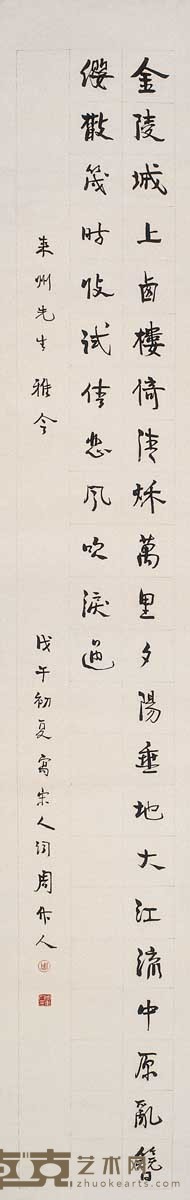 金陵城上卤樓倚清秌萬里夕陽垂地大江流中原亂簪
纓散幾时收試倩悲風吹淚過
来州先生雅令
戊午初夏寫宋人詞周作人
艺术网
zhuokearts.com